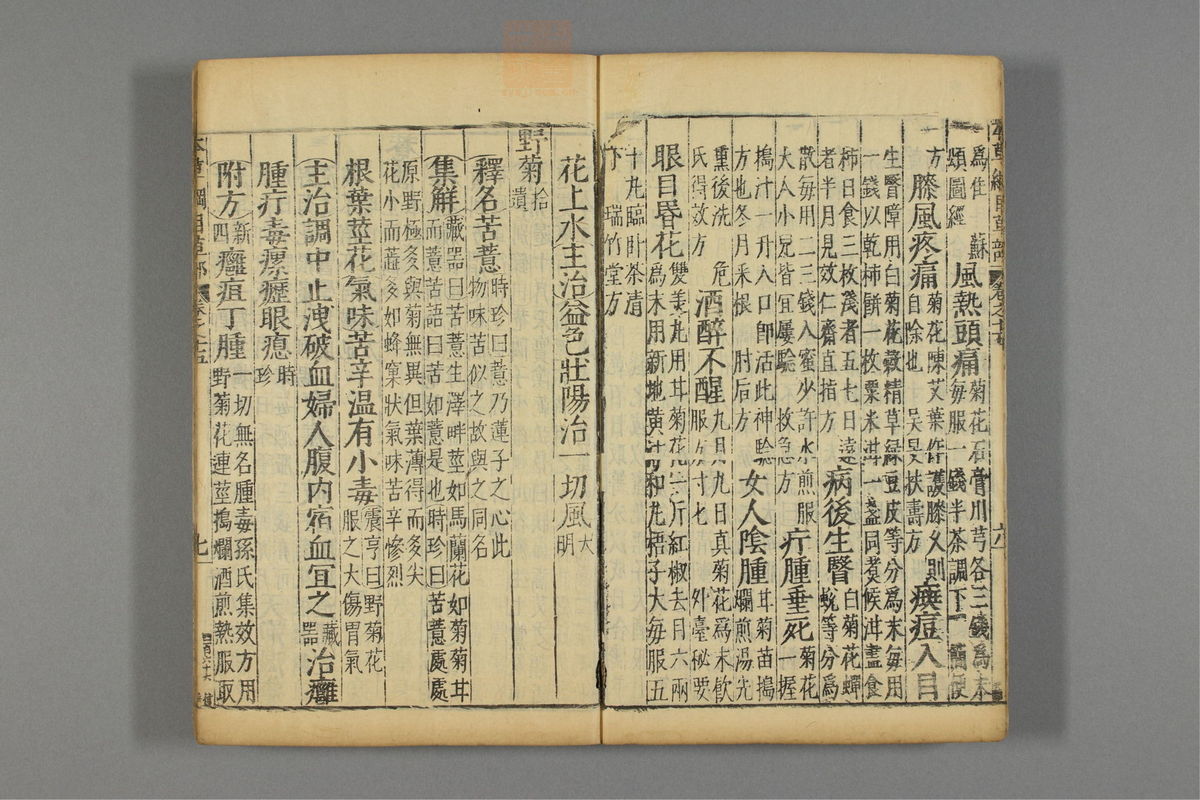 本草綱目草部 卷之十五 六
為佳 蘇頌圖經 風熱頭痛 菊花石膏川芎各三錢為末每服一錢半茶調下 簡便
方 膝風疼痛 菊花陳艾葉作護膝久則自除也 吳旻扶壽方 癍痘入目
生瞖障用白菊花穀精草綠豆皮等分為末每用
一錢以乾柿餅一枚粟米泔一盞同煮候泔盡食
柿日食三枚淺者五七日遠者半月見效仁齋直指方 病後生瞖 白菊花蟬蛻等分為
散每用二三錢入蜜少許水煎服大人小兒皆宜屢驗 救急方 疔腫垂死 菊花一握
搗汁一升入口即活此神驗方也冬月采根 肘后方 女人陰腫 甘菊苗搗爛煎湯先
熏後洗 危氏得效方 酒醉不醒 九月九日真菊花為末飲服方寸匕 外臺秘要
眼目昏花 雙美丸用甘菊花一斤紅椒去目六兩為末用新地黄汁和丸梧子大每服五
十丸臨卧茶清下 瑞竹堂方
花上水主治益色壯陽治一切風 大明
野菊 拾遺
釋名苦薏 時珍曰薏乃蓮子之心此物味苦似之故與之同名
集解 藏器曰苦薏生澤畔莖如馬蘭花如菊菊甘而薏苦語曰苦如薏是也時珍曰苦薏處處
原野極多與菊無異但葉薄小而多尖
花小而蕋多如蜂窠狀氣味苦辛慘烈
根葉莖花氣味苦辛温有小毒 震亨曰野菊花服之大傷胃氣
主治調中止洩破血婦人腹内宿血宜之 藏器 治癰
腫疔毒瘰癧眼瘜 時珍
附方 新四 癰疽丁腫 一切無名腫毒孫氏集效方用野菊花連莖搗爛酒煎熱服取
本草綱目草部 卷之十五 七